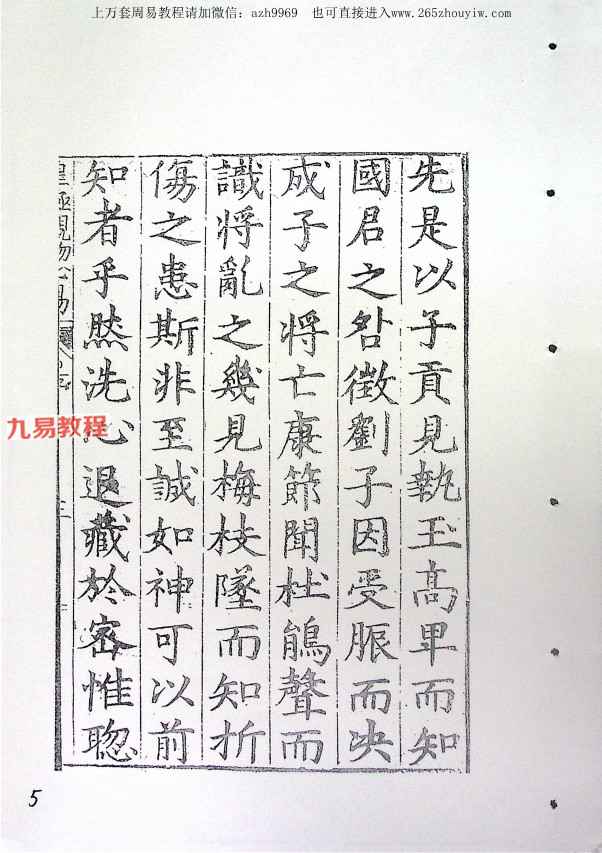 上万套周易教程请加微信：azh9969　也可直接进入www.265zhouyiw.com
先是以子貢見執玉高卑而知
國君之咎徵劉子因受脤而决
成子之將亡康節聞杜鵑聲而
識將亂之幾見梅枝墜而知折
傷之患斯非至誠如神可以前
知者乎然洗心退藏於密惟聦
皇極觀物
易
九易教程
5